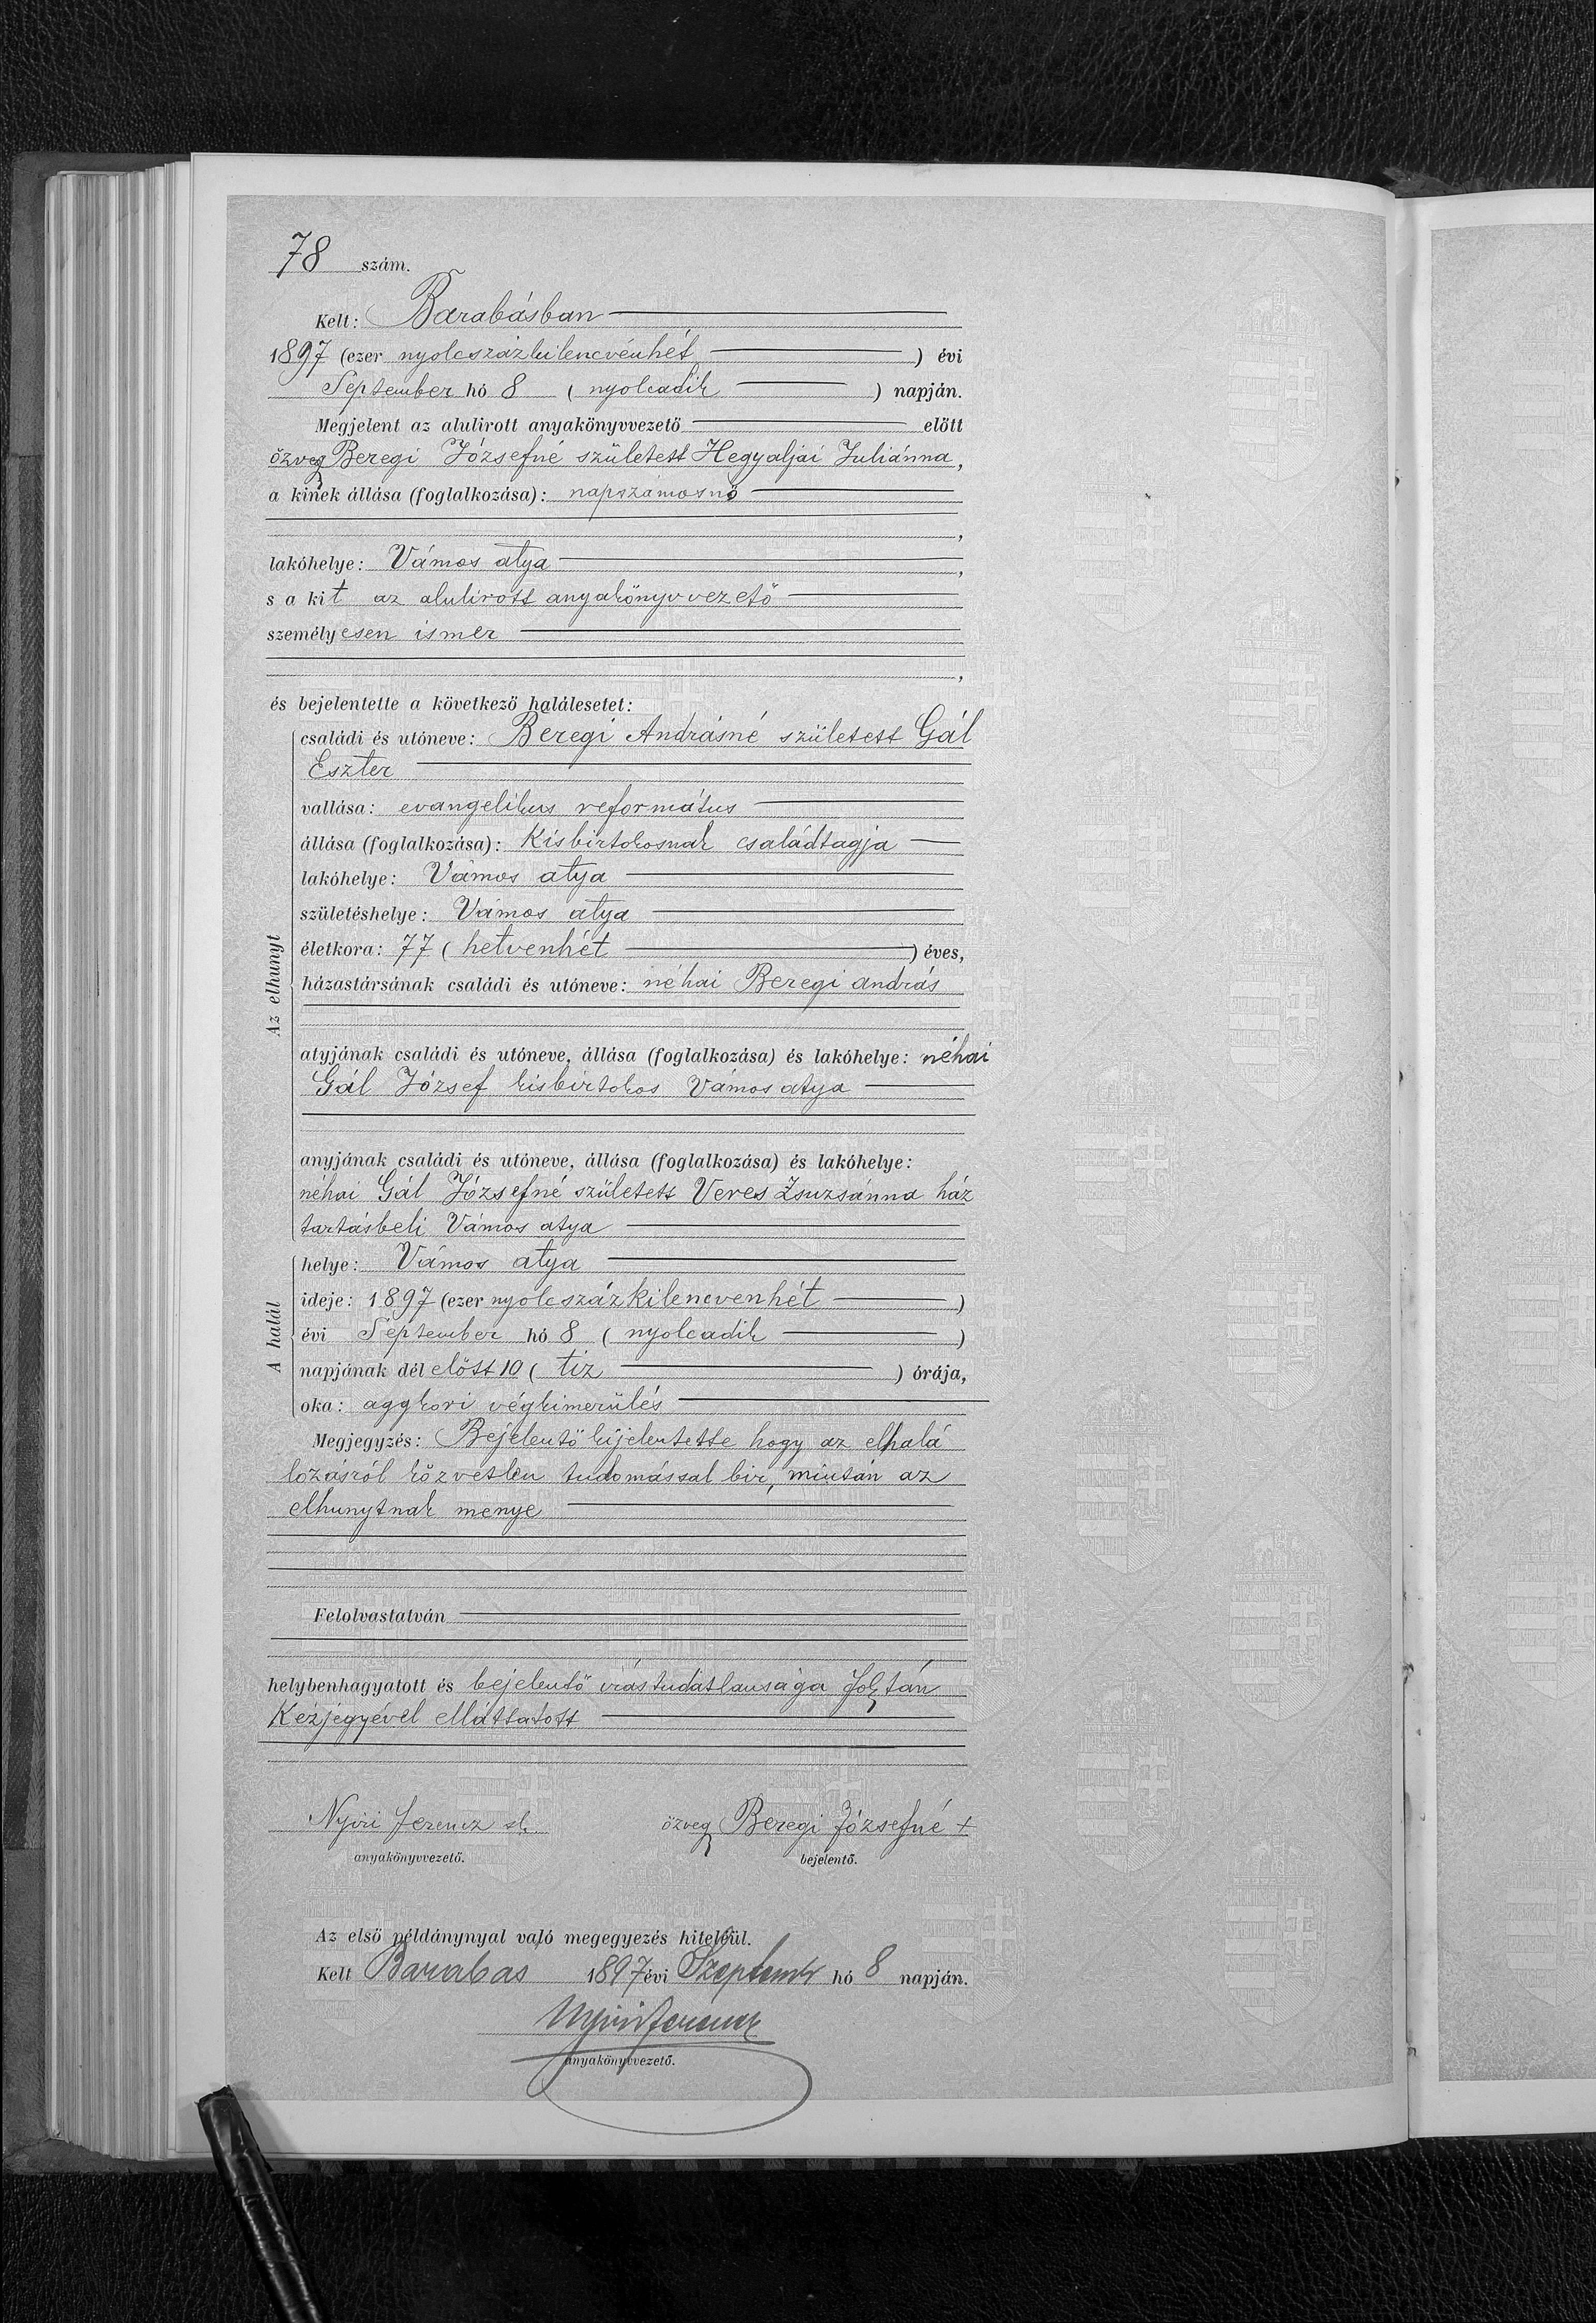 78 szám.
Kelt: Barabásban
1897 (ezer nyolcszázkilencvenhét) évi
September hó 8 (nyolcadik) napján.
Megjelent az alulirott anyakönyvvezető előtt
özvegy Beregi Józsefné született Hegyaljai Juliánna,
a kinek állása (foglalkozása): napszámosnő
,
lakóhelye: Vámos atya,
s a kit az alulirott anyakönyvvezető
személyesen ismer
,
és bejelentette a következő halálesetet:
Az elhunyt
családi és utóneve: Beregi Andrásné született Gál
Eszter
vallása: evangelikus református
állása (foglalkozása): Kisbirtokosnak családtagja
lakóhelye: Vámos atya
születéshelye: Vámos atya
életkora: 77 (hetvenhét) éves,
házastársának családi és utóneve: néhai Beregi András
atyjának családi és utóneve, állása (foglalkozása) és lakóhelye: néhai
Gál József kisbirtokos Vámos atya
anyjának családi és utóneve, állása (foglalkozása) és lakóhelye:
néhai Gál Józsefné született Veres Zsuzsánna ház
tartásbeli Vámos atya
A halál
helye: Vámos atya
ideje: 1897 (ezer nyolcszázkilencvenhét)
évi September hó 8 (nyolcadik)
napjának dél előtt 10 (tiz) órája,
oka: aggkori végkimerülés
Megjegyzés: Bejelentő kijelentette hogy az elhalá
lozásról közvetlen tudomással bir, miután az
elhunytnak menye
Felolvastatván
helybenhagyatott és bejelentő irástudatlansága folytán
Kézjegyével elláttatott
Nyiri Ferencz sk. özvegy Beregi Józsefné +
anyakönyvvezető. bejelentő.
Az első példánynyal való megegyezés hiteléül.
Kelt Barabas 1897 évi Szeptemb hó 8 napján.
Nyiri Ferencz
anyakönyvvezető.